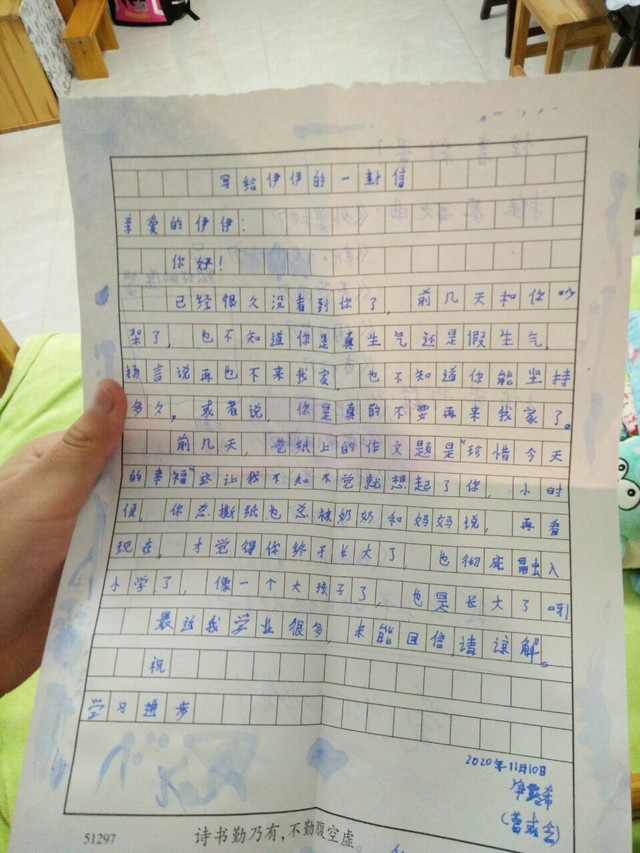 写给伊伊的一封信
亲爱的伊伊：
你好！
已经很久没看到你了，前几天和你吵
架了，也不知道你是真生气还是假生气，
扬言说再也不来我家，也不知道你能坚持
多久，或者说 你是真的不要再来我家了。
前几天，卷纸上的作文题是"珍惜今天
的幸福"这让我不知不觉就想起了你，小时
候，你总撕纸也总被奶奶和妈妈说，再看
现在，才觉得你终于长大了，也彻底融入
小学了，像一个大孩子了，也是长大了呀
最近我学业很多，未能回信请谅解。
祝
学习进步
2020年11月10日
51297
诗书勤乃有，不勤腹空虚。